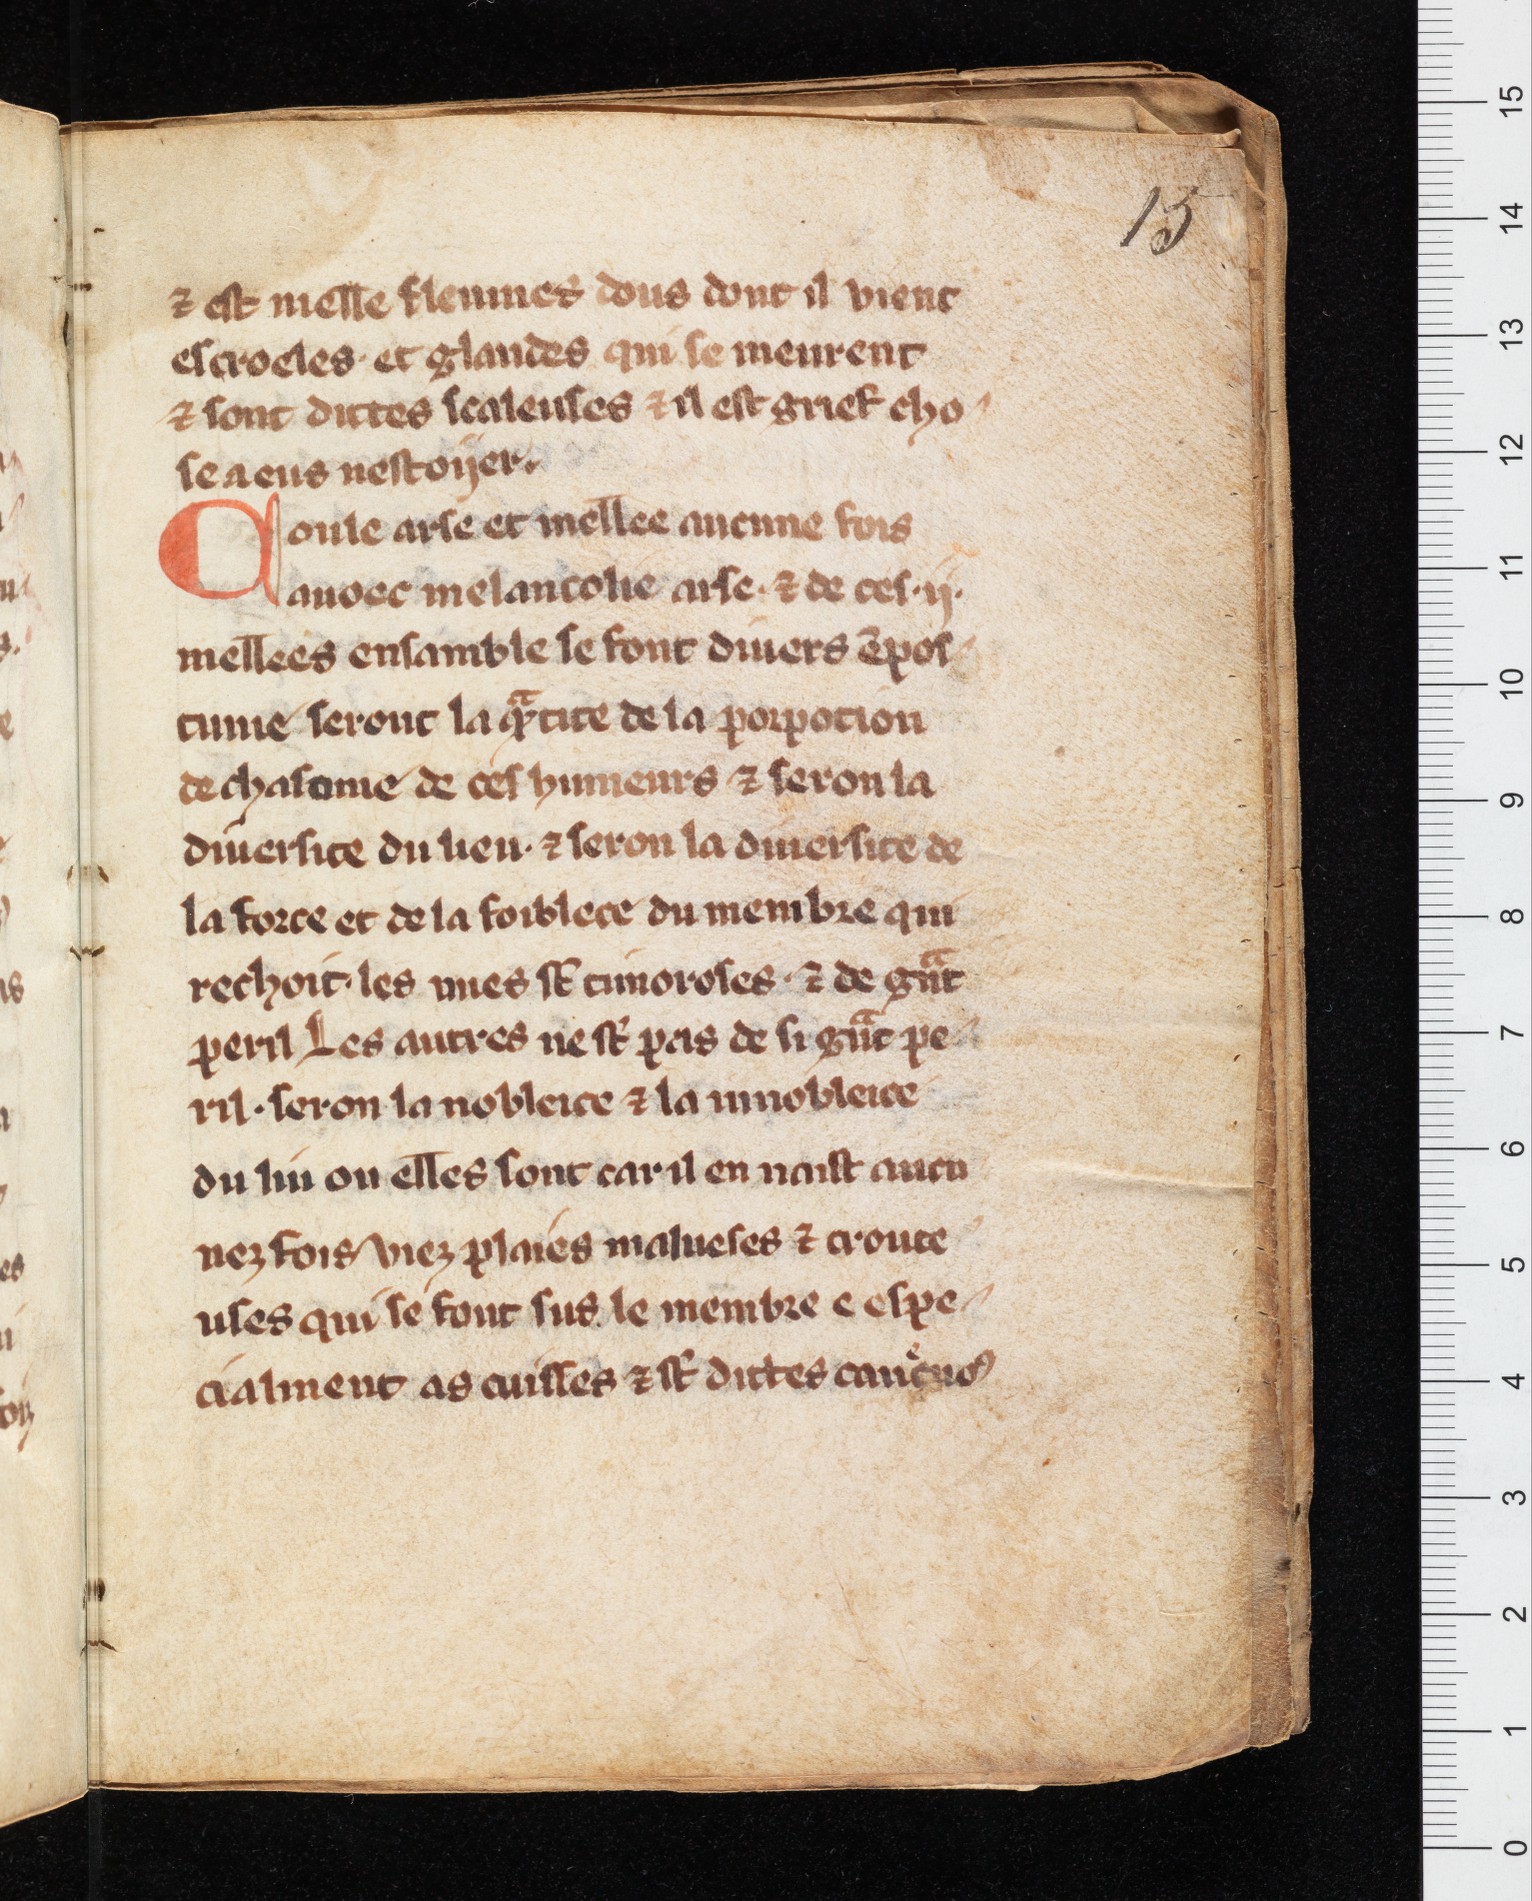 15
⁊ est melle fleumes dous dont il vient
escroeles · et glandes qui se meurent
⁊ sont dittes scaleuses ⁊ il est grief cho
se a eus nestoijer.
Coule arse et mellee aucune fois
auoec melancolie arse · ⁊ de ces · ij ·
mellees ensamble se font diuers ēpos
tume seront la qᵃtite de la porpotion
de chascune de ces humeurs ⁊ seron la
diuersite du lieu · ⁊ seron la diuersite de
la force et de la foiblece du membre qui
rechoit · les unes st̄ timoroses · ⁊ de gᵃnt
peril Les autres ne st̄ pas de si gᵃnt pe
ril · seron la nobleice ⁊ la innobleice
du liu ou elles sont car il en naist aucu
nez fois viez plaies malueses ⁊ croute
uses qui se font sus le membre e espe
cialment as cuisses ⁊ st̄ dittes
15
14
13
12
11
10
9
8
7
6
5
4
3
2
1
0